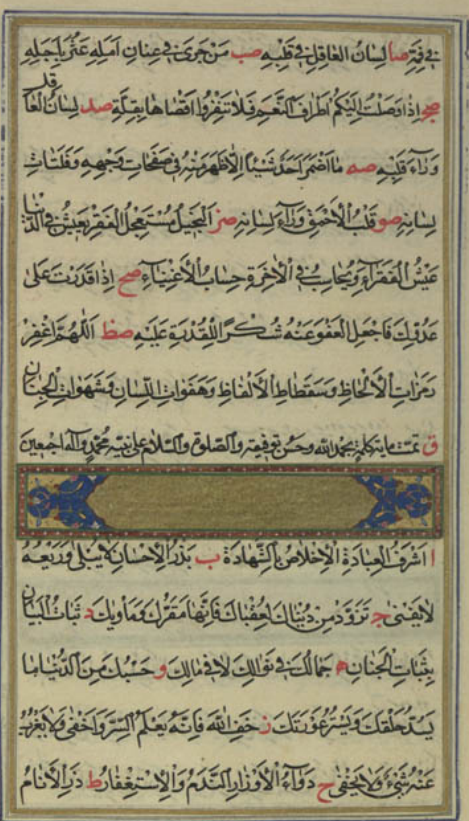 في فيه صا لسان العاقل في قلبه صب من جرى في عنان امله عثر باجله
صج اذا وصلت اليكم اطراف النعم فلا تنفروا اقصاها بقلة صد لسان العاقل
وراء قلبه صه ما اضمر احد شيئا الا ظهر منه في صفحات وجهه وفلتات
لسانه صو قلب الاحمق وراء لسانه صز البخيل مستعجل الفقر يعيش في الدنيا
عيش الفقراء ويحاسب في الاخرة حساب الاغنياء صح اذا قدرت على
عدوك فاجعل العفو عنه شكرا للقدرة عليه صط اللهم اغفر
رمزات الالحاظ وسقطات الالفاظ وهفوات اللسان وشهوات الجنان
ق تمت ماية كلمة بحمد الله وحسن توفيقه والصلوة والسلام على نبيه محمد واله اجمعين
ا اشرف العبادة الاخلاص بالشهادة ب بذر الاحسان لا يبلى وريعه
لا يفنى ج تزود من دنياك لعقباك فانها مقرك ومأويك د ثبات البيان
بثبات الجنان ه جمالك في نوالك لا في مالك و حسبك من الدنيا ما
يسد خلقك ويستر عورتك ز خف الله فانه يعلم السر واخفى ولا يعزب
عنه شيء ولا يخفى ح دواء الاوزار الندم والاستغفار ط ذر الانام